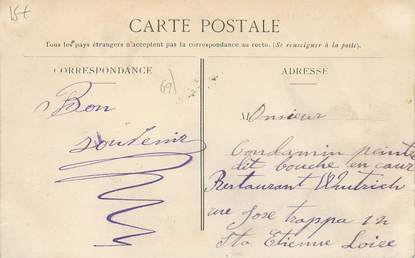 15+
CARTE POSTALE
Tous les pays étrangers n'acceptent pas la correspondance au recto. (Se renseigner à la poste).
CORRESPONDANCE
ADRESSE
69/
Bon
souvenir
Monsieur
Condamin peintre
dit bouche en cœur
Restaurant
rue Jose Frappa 12
St Etienne Loire